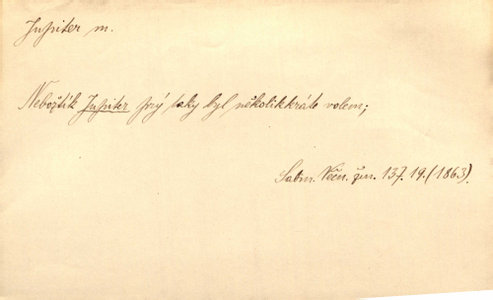 Jupiter m.
Nebožtík Jupiter prý taky byl několikkráte volem;
Sabin. Věčn. žen. 137. 19. (1863).